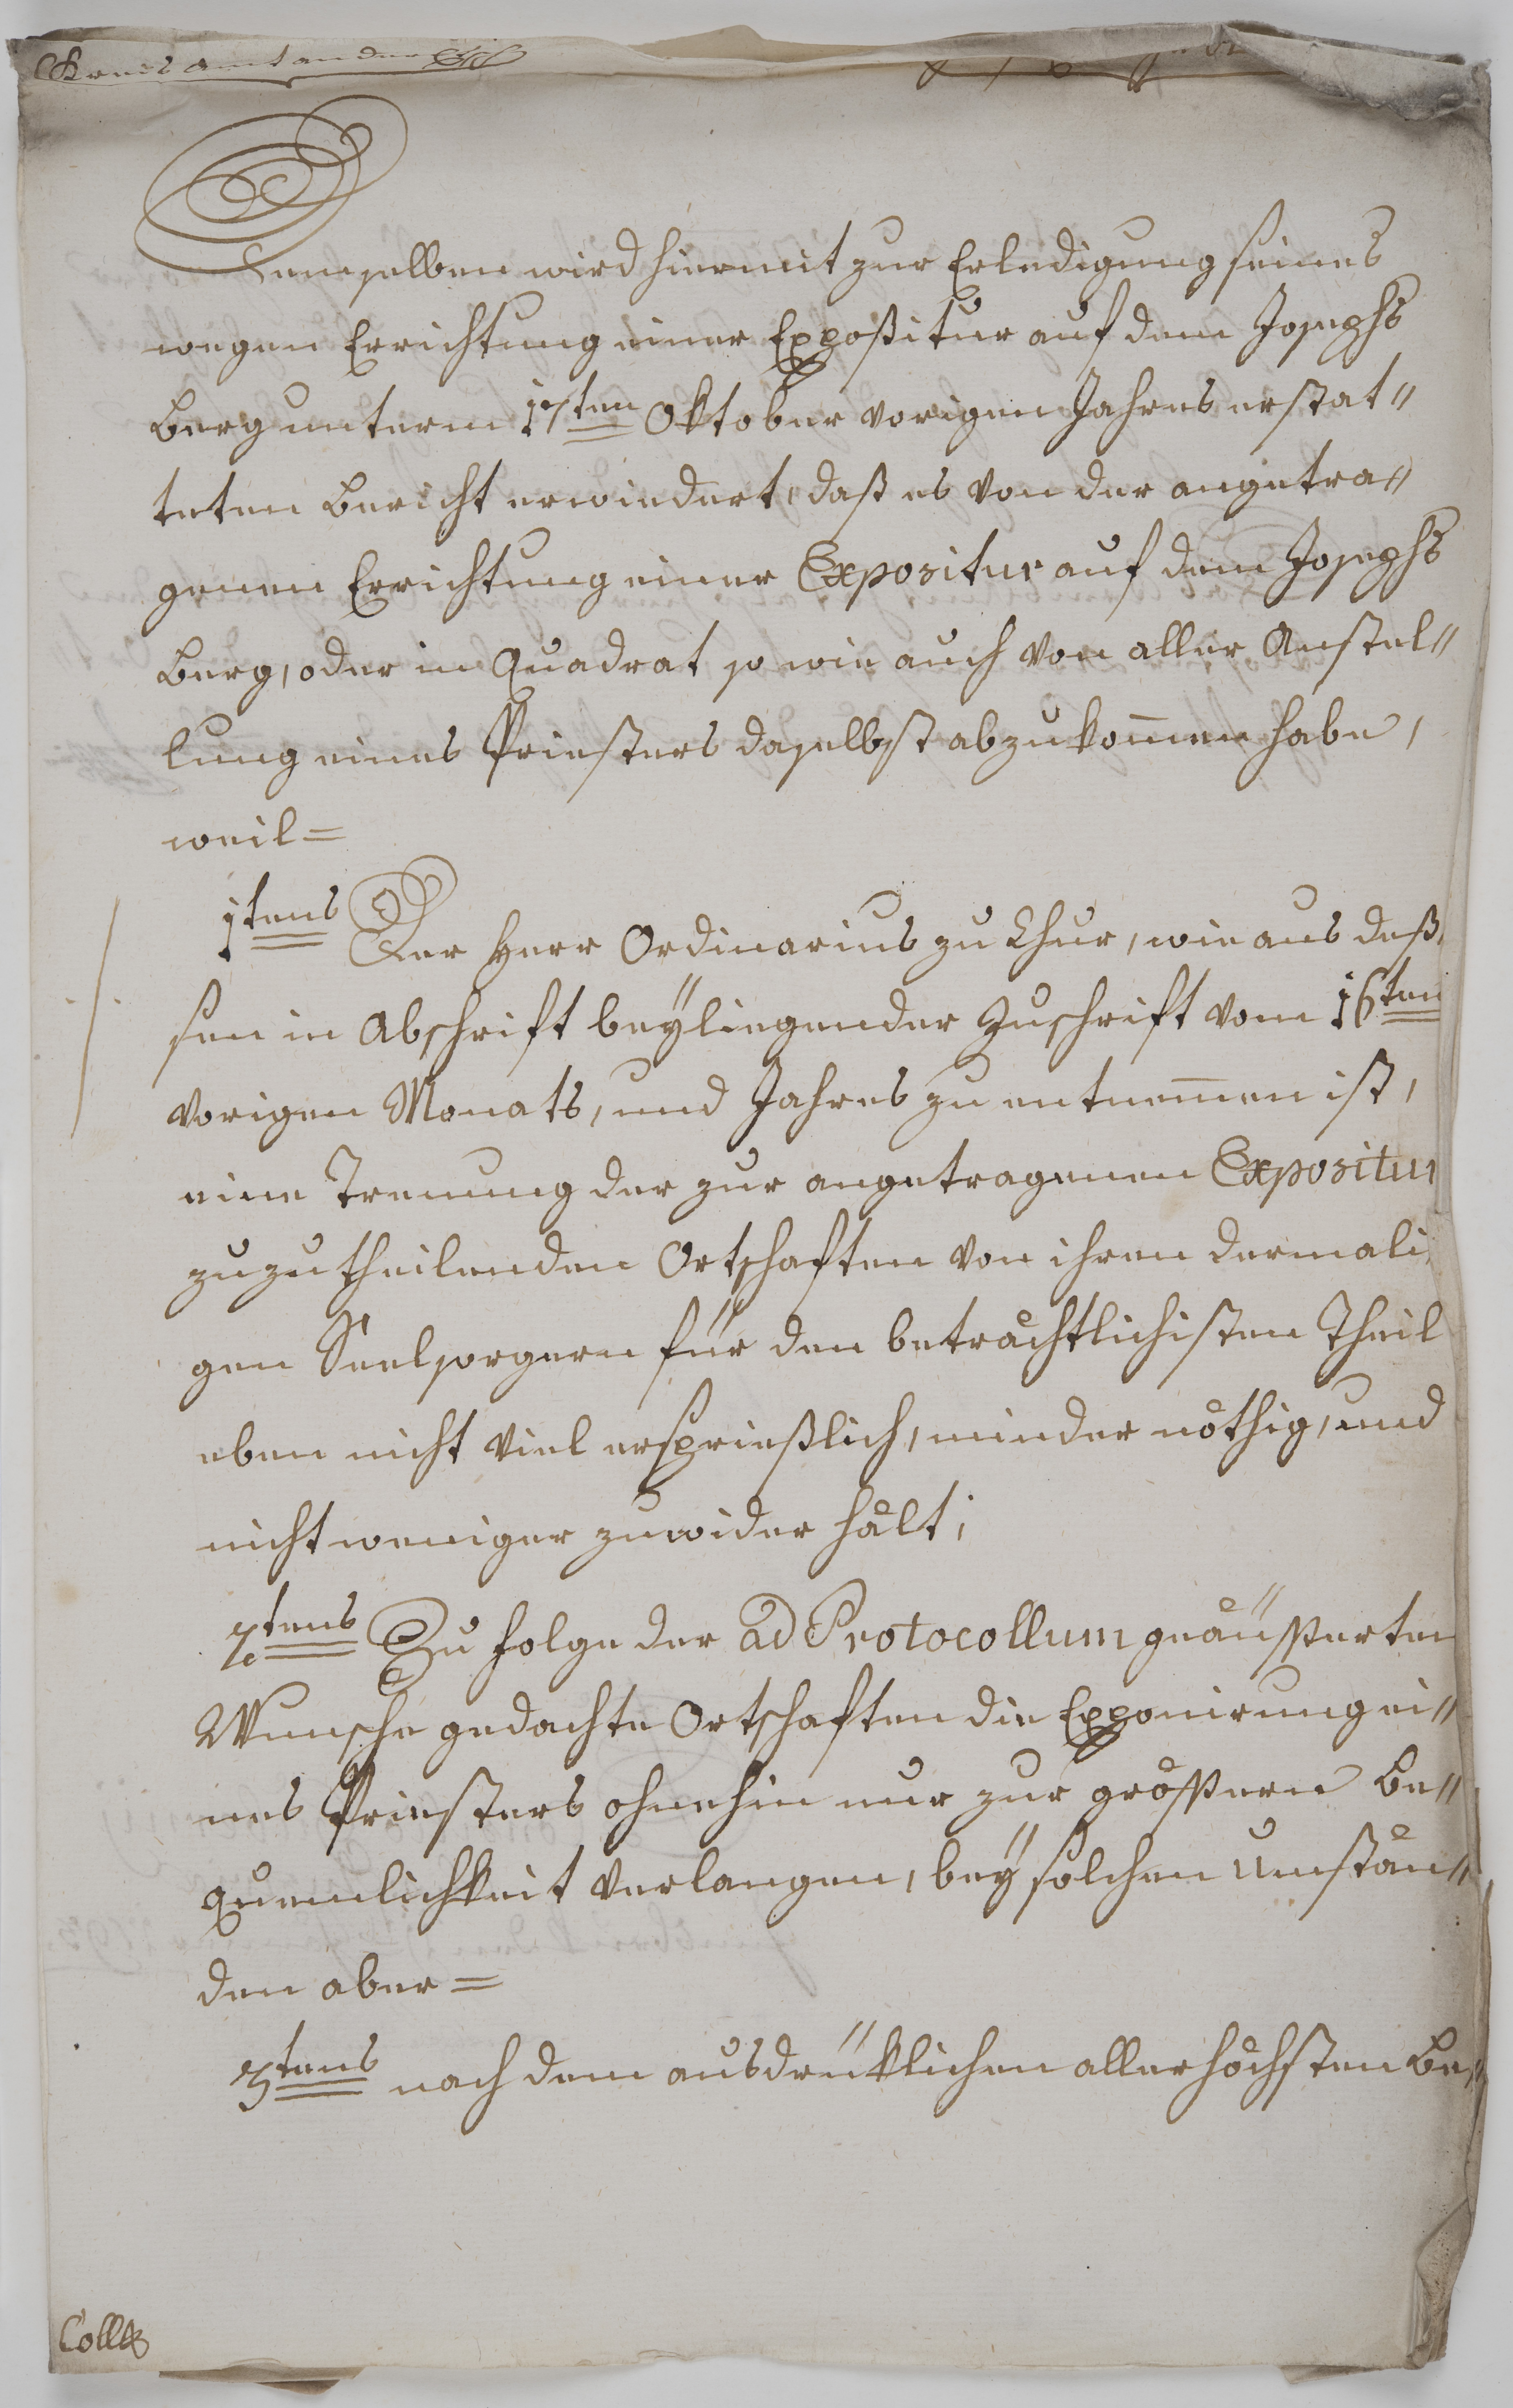 Kreisamt an der Etsch
Demselben wird hiermit zur Erledigung seines
wegen Errichtung einer Expositur auf dem Josephs
Berg unterm 17ten Oktober vorigen Jahres erstat"
teten Bericht erwiedert, daß es von der angetra"
genen Errichtung einer Expositur auf dem Josephs
Berg, oder in Quadrat so wie auch von aller Anstel"
lung eines Priesters daselbst abzukom̄en habe,
weil=
1tens Der Herr Ordinarius zu Chur, wie aus deß,
sen in Abschrift beÿliegender Zuschrift vom 16ten
vorigen Monats, und Jahres zu entnem̄en ist,
eine Trenung der zur angetragenen Expositur
zuzutheilenden Ortschaften von ihren dermali,
gen Seelsorgern für den beträchtlichisten Theil
eben nicht viel ersprießlich, minder nöthig, und
nicht weniger zuwider hält;
2tens Zu folge der ad Protocollum geäusserten
Wunsche gedachte Ortschaften die Exponirung ei"
nes Priesters ohnehin nur zur grössern Be"
quemlichkeit verlangen, beÿ solchen Umstän"
den aber=
3tens nach dem ausdrüklichen allerhöchsten Be"